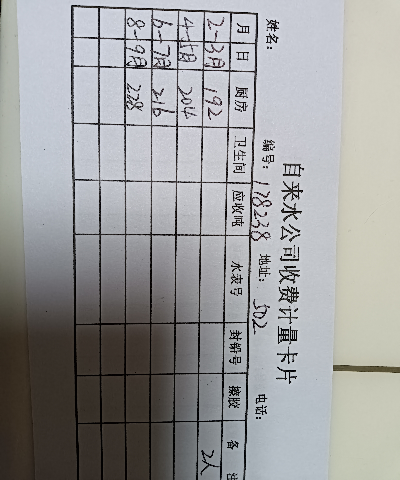 自来水公司收费计量卡片
姓名： 编号：178238 地址：502 电话：
月 日 厨房 卫生间 应收吨 水表号 封铅号 橡胶 备 注
2-3月 192 2人
4-5月 204
6-7月 216
8-9月 228